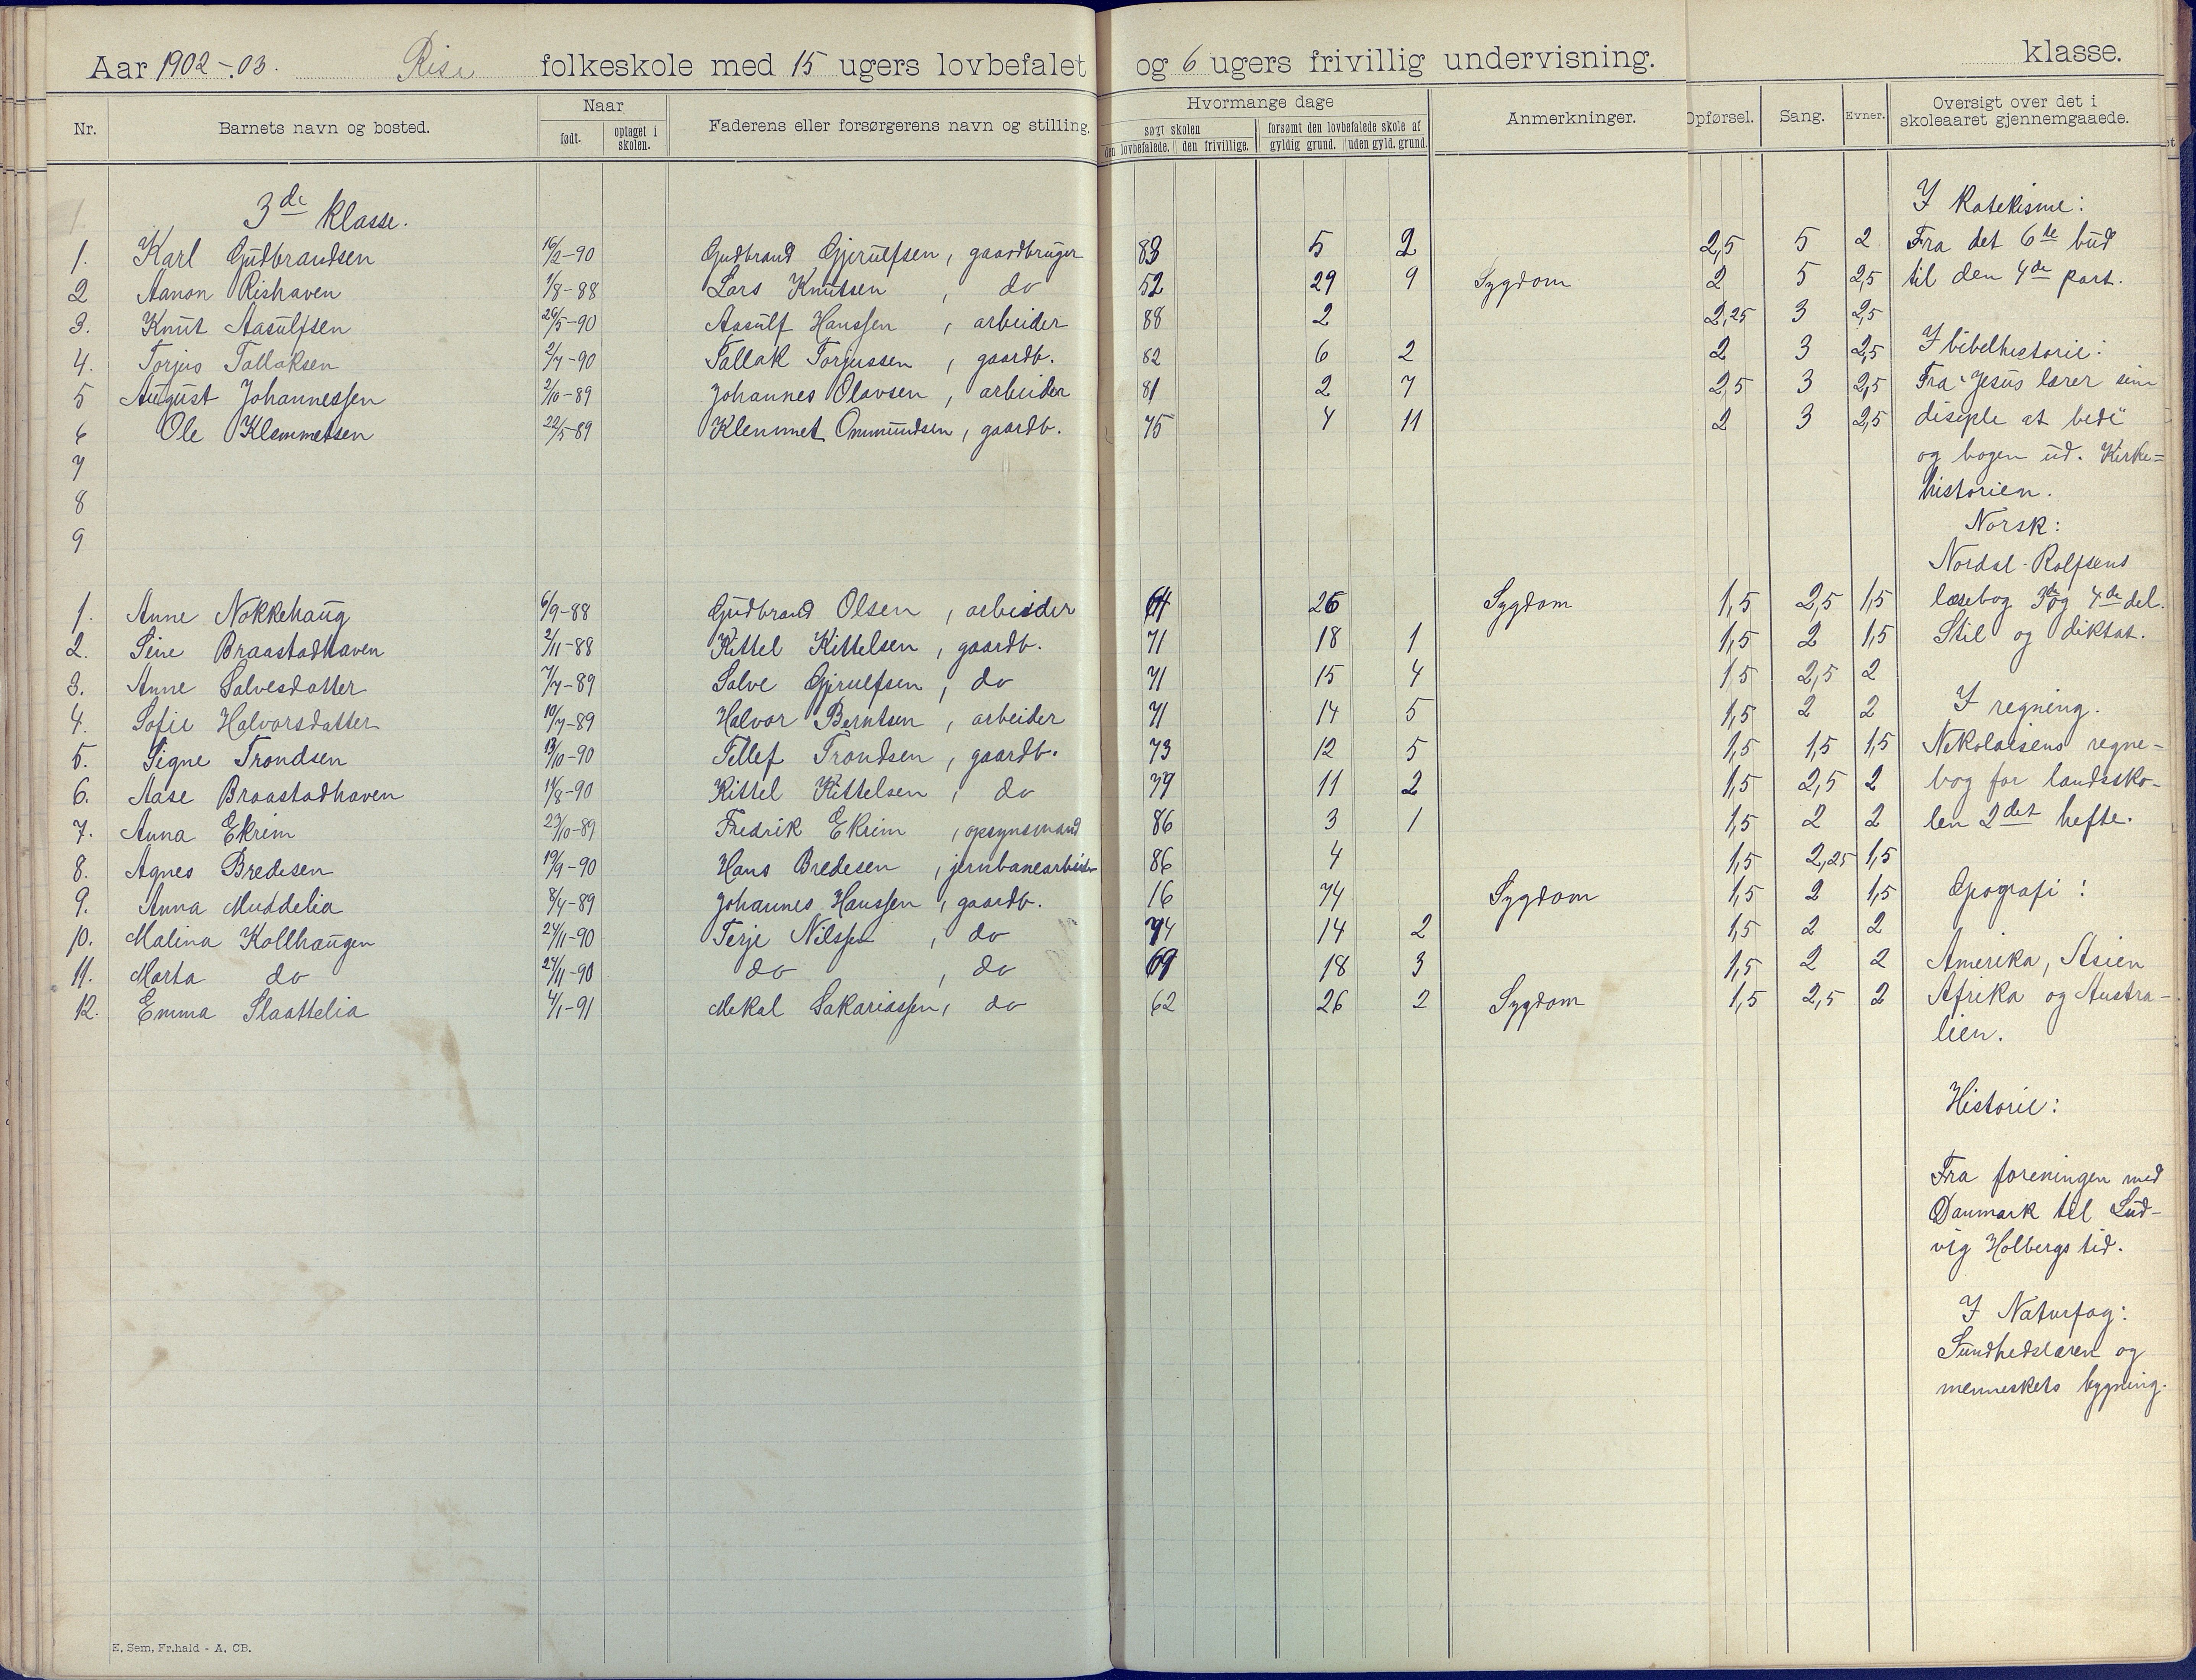 Aar 1902-03. Rise folkeskole med 15 ugers lovbefalet og 6 ugers frivillig undervisning. klasse.
Nr. Barnets navn og bosted. Naar født. optaget i skolen. Faderens eller forsørgerens navn og stilling. Hvormange dage søgt skolen den lovbefalede. den frivillige. forsømt den lovbefalede skole af gyldig grund. uden gyld. grund. Anmerkninger. Opførsel. Sang. Evner. Oversigt over det i skoleaaret gjennemgaaede.
3de klasse.
1. Karl Gudbrandsen 16/2-90 Gudbrand Gjerulfsen, gaardbruger 83 5 2 2,5 5 2
2 Aanon Rishaven 1/8-88 Lars Knutsen, do 52 29 9 Sygdom 2 5 2,5
3. Knut Aasulfsen 26/5-90 Aasulf Hanssen, arbeider 88 2 2,25 3 2,5
4. Torjus Tallaksen 2/7-90 Tallak Torjussen, gaardb. 82 6 2 2 3 2,5
5 August Johannessen 2/10-89 Johannes Olavsen, arbeider 81 2 7 2,5 3 2,5
6 Ole Klemmetsen 22/5-89 Klemmet Ommundsen, gaardb. 75 4 11 2 3 2,5
7
8
9
1. Anne Nokkehaug 6/9-88 Gudbrand Olsen, arbeider 64 26 Sygdom 1,5 2,5 1,5
2. Sine Braastadhaven 2/11-88 Kittel Kittelsen, gaardb. 71 18 1 1,5 2 1,5
3. Anne Salvesdatter 7/7-89 Salve Gjerulfsen, do 71 15 4 1,5 2,5 2
4. Sofie Halvorsdatter 10/7-89 Halvor Berntsen, arbeider 71 14 5 1,5 2 2
5. Signe Trondsen 13/10-90 Tellef Trondsen, gaardb. 73 12 5 1,5 1,5 1,5
6. Aase Braastadhaven 14/8-90 Kittel Kittelsen, do 77 11 2 1,5 2,5 2
7. Anna Ekrim 23/10-89 Fredrik Ekrim, opsynsmand 86 3 1 1,5 2 2
8. Agnes Bredesen 19/9-90 Hans Bredesen, jernbanearbeider 86 4 1,5 2,25 1,5
9. Anna Muddelia 8/4-89 Johannes Hanssen, gaardb. 16 74 Sygdom 1,5 2 1,5
10. Malina Kollhaugen 24/11-90 Terje Nilssen, do 74 14 2 1,5 2 2
11. Marta do 24/11-90 do, do 69 18 3 1,5 2 2
12. Emma Slaattelia 4/1-91 Mekal Sakariassen, do 62 26 2 Sygdom 1,5 2,5 2
I katekisme:
Fra det 6te bud
til den 4de part.
I bibelhistorie:
Fra "Jesus lærer sine
disiple at bede"
og bogen ud. Kirke=
historien.
Norsk:
Nordal-Rolfsens
læsebog 3de og 4de del.
Stil og diktat.
I regning.
Nikolaisens regne-
bog for landssko-
len 2det hefte.
Geografi:
Amerika, Asien
Afrika og Austra-
lien.
Historie:
Fra foreningen med
Danmark til Lud-
vig Holbergs tid.
I Naturfag:
Sundhedslæren og
menneskets bygning.
E. Sem, Fr.hald - A. CB.